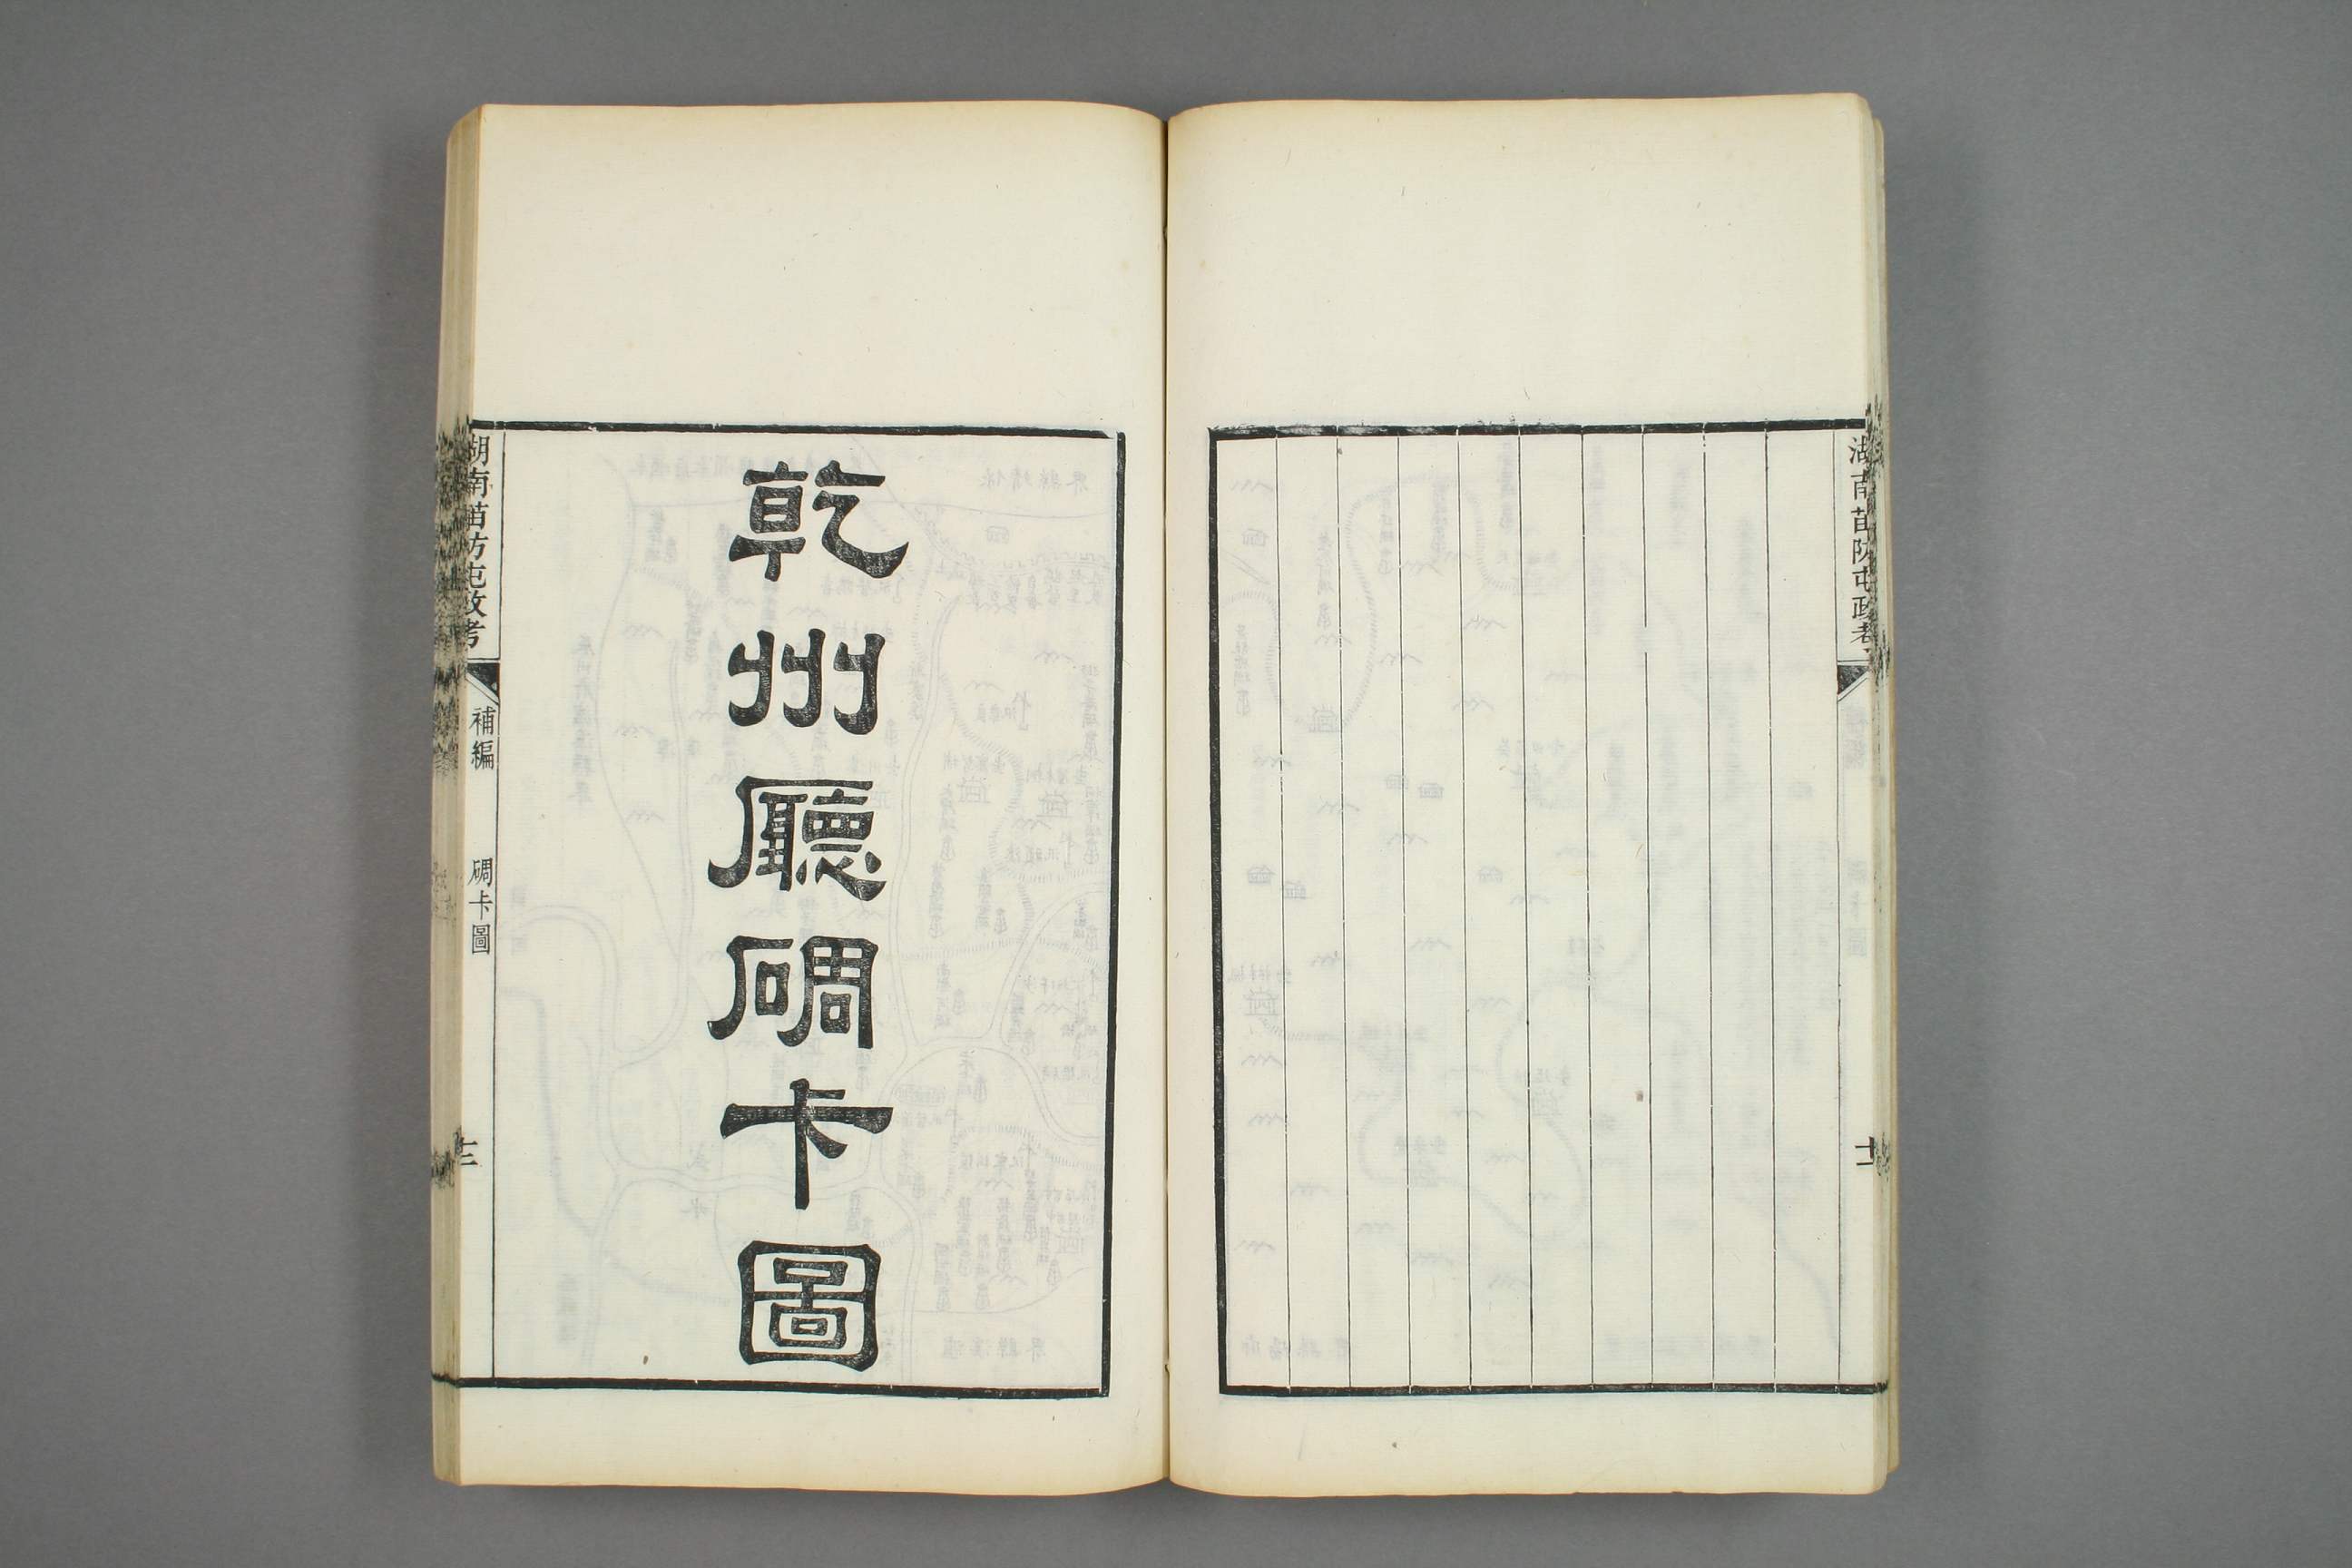 湖南苗防屯政考
十一
乾州廳碉卡圖
湖南苗防屯政考
補編
碉卡圖
十二